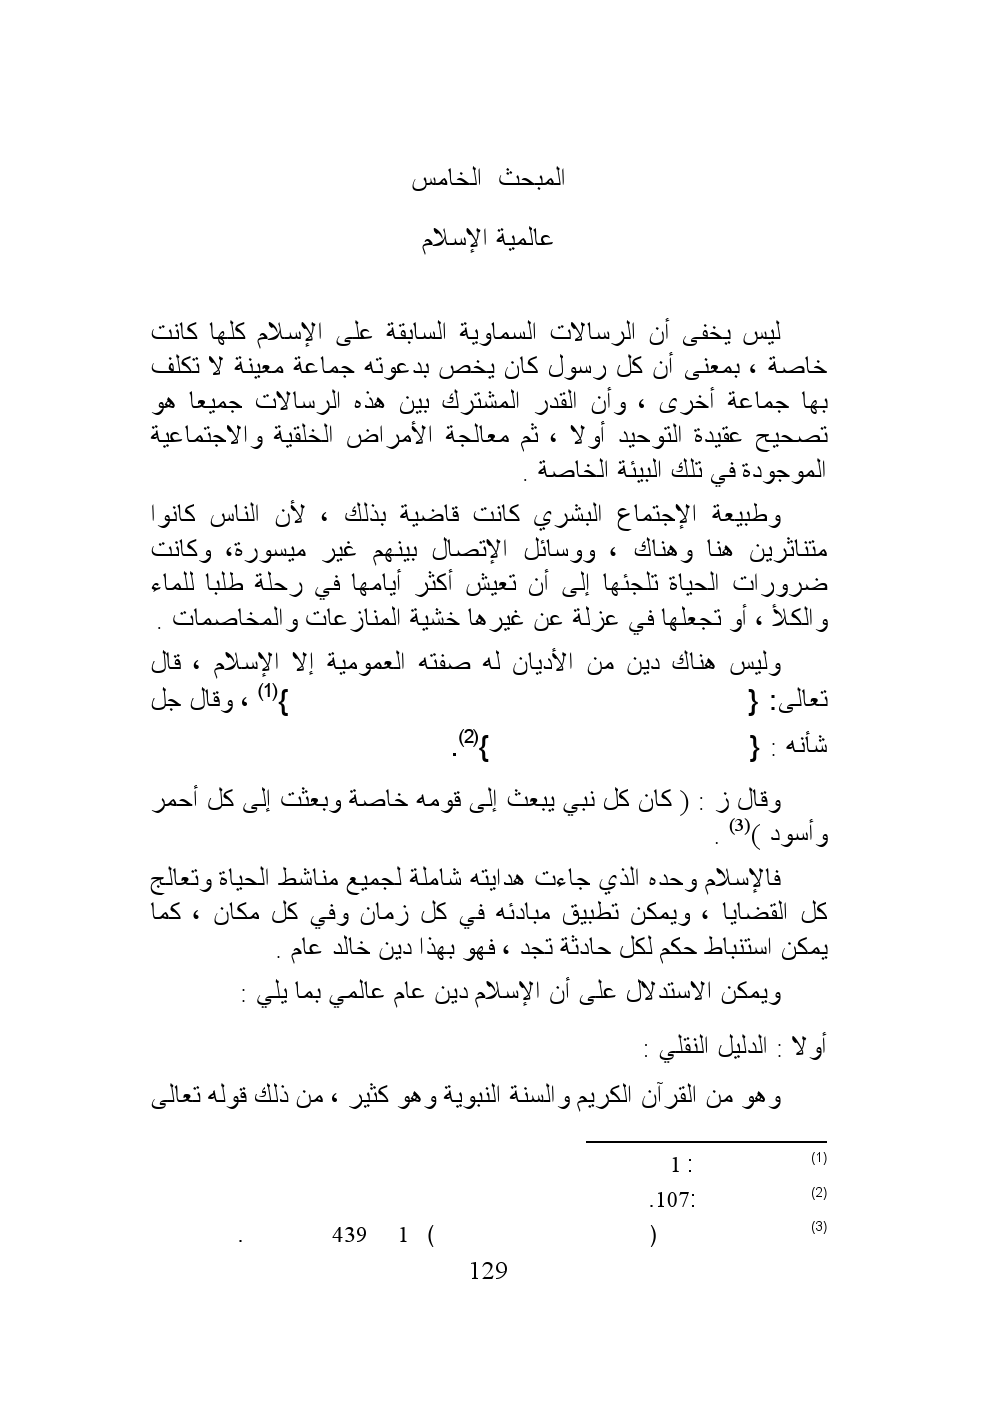 المبحث الخامس
عالمية الإسلام
ليس يخفى أن الرسالات السماوية السابقة على الإسلام كلها كانت
خاصة ، بمعنى أن كل رسول كان يخص بدعوته جماعة معينة لا تكلف
بها جماعة أخرى ، وأن القدر المشترك بين هذه الرسالات جميعا هو
تصحيح عقيدة التوحيد أولا ، ثم معالجة الأمراض الخلقية والاجتماعية
الموجودة في تلك البيئة الخاصة .
وطبيعة الإجتماع البشري كانت قاضية بذلك ، لأن الناس كانوا
متناثرين هنا وهناك ، ووسائل الإتصال بينهم غير ميسورة، وكانت
ضرورات الحياة تلجئها إلى أن تعيش أكثر أيامها في رحلة طلبا للماء
والكلأ ، أو تجعلها في عزلة عن غيرها خشية المنازعات والمخاصمات .
وليس هناك دين من الأديان له صفته العمومية إلا الإسلام ، قال
تعالى: { }(1) ، وقال جل
شأنه : { }(2).
وقال ز : ( كان كل نبي يبعث إلى قومه خاصة وبعثت إلى كل أحمر
وأسود )(3) .
فالإسلام وحده الذي جاءت هدايته شاملة لجميع مناشط الحياة وتعالج
كل القضايا ، ويمكن تطبيق مبادئه في كل زمان وفي كل مكان ، كما
يمكن استنباط حكم لكل حادثة تجد ، فهو بهذا دين خالد عام .
ويمكن الاستدلال على أن الإسلام دين عام عالمي بما يلي :
أولا : الدليل النقلي :
وهو من القرآن الكريم والسنة النبوية وهو كثير ، من ذلك قوله تعالى
(1) : 1
(2) :107.
(3) ( ) 1 439 .
129